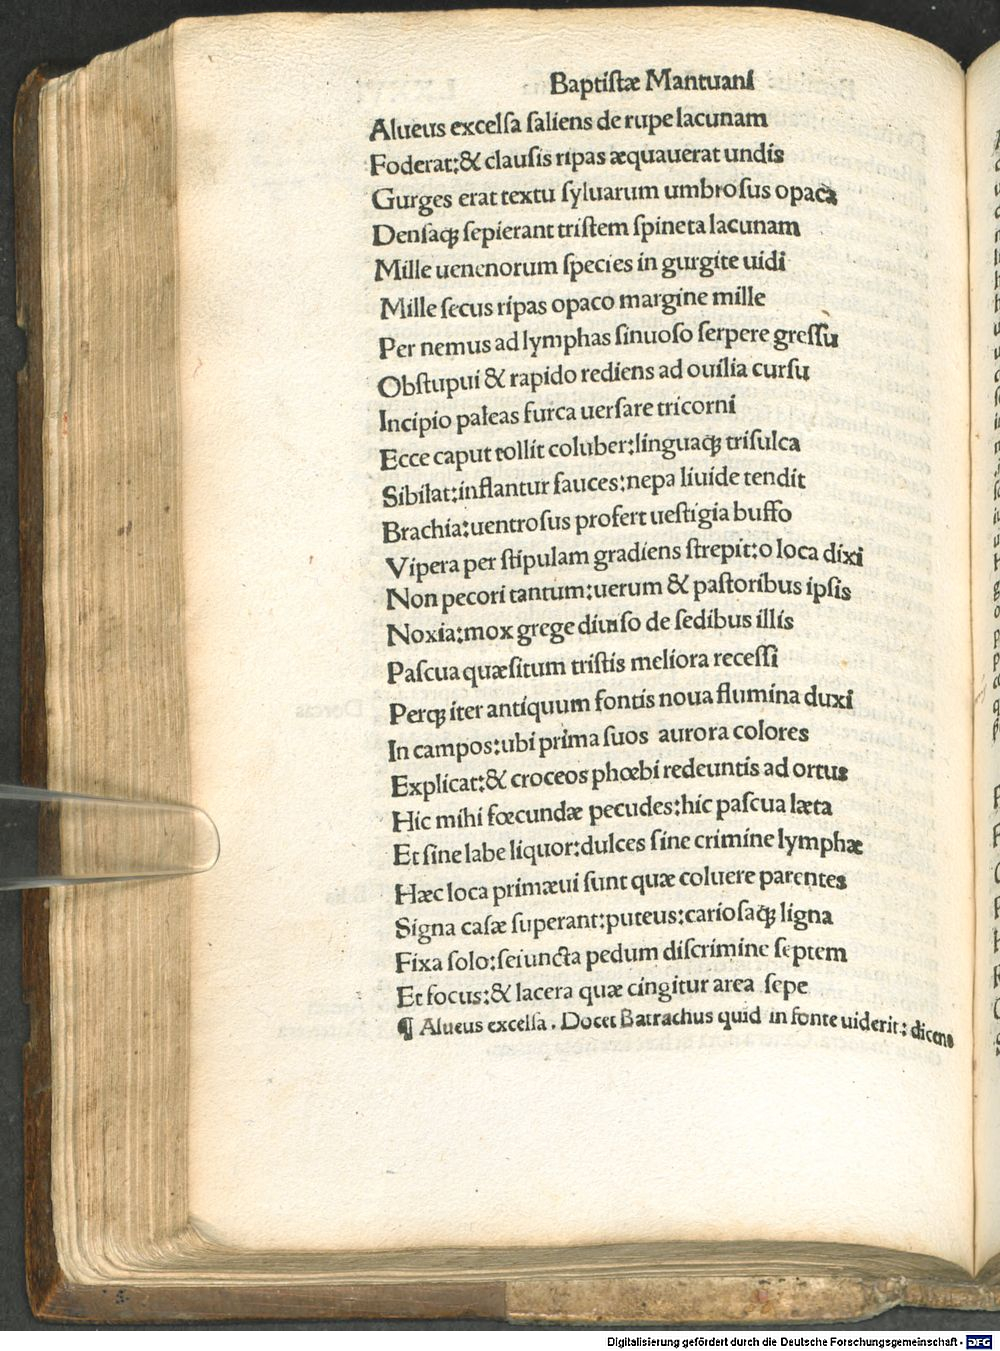 Baptistæ Mantuani
Alueus excelſa ſaliens de rupe lacunam
Foderat:& clauſis ripas æquauerat undis
Gurges erat textu ſyluarum umbroſus opaca
Denſaq; ſepierant triſtem ſpineta lacunam
Mille uenenorum ſpecies in gurgite uidi
Mille ſecus ripas opaco margine mille
Per nemus ad lymphas ſinuoſo ſerpere greſſu
Obſtupui & rapido rediens ad ouilia curſu
Incipio paleas furca uerſare tricorni
Ecce caput tollit coluber:linguaq; triſulca
Sibilat:inflantur fauces:nepa liuide tendit
Brachia:uentroſus profert ueſtigia buffo
Vipera per ſtipulam gradiens ſtrepit:o loca dixi
Non pecori tantum:uerum & paſtoribus ipſis
Noxia:mox grege diuiſo de ſedibus illis
Paſcua quæſitum triſtis meliora receſſi
Perq; iter antiquum fontis noua flumina duxi
In campos:ubi prima ſuos aurora colores
Explicat:& croceos phœbi redeuntis ad ortus
Hic mihi fœcundæ pecudes:hic paſcua læta
Et ſine labe liquor:dulces ſine crimine lymphæ
Hæc loca primæui ſunt quæ coluere parentes
Signa caſæ ſuperant:puteus:carioſaq; ligna
Fixa ſolo:ſeiuncta pedum diſcrimine ſeptem
Et focus:& lacera quæ cingitur area ſepe
¶ Alueus excelſa. Docet Batrachus quid in fonte uiderit: dicens
Digitalisierung gefördert durch die Deutsche Forschungsgemeinschaft - DFG